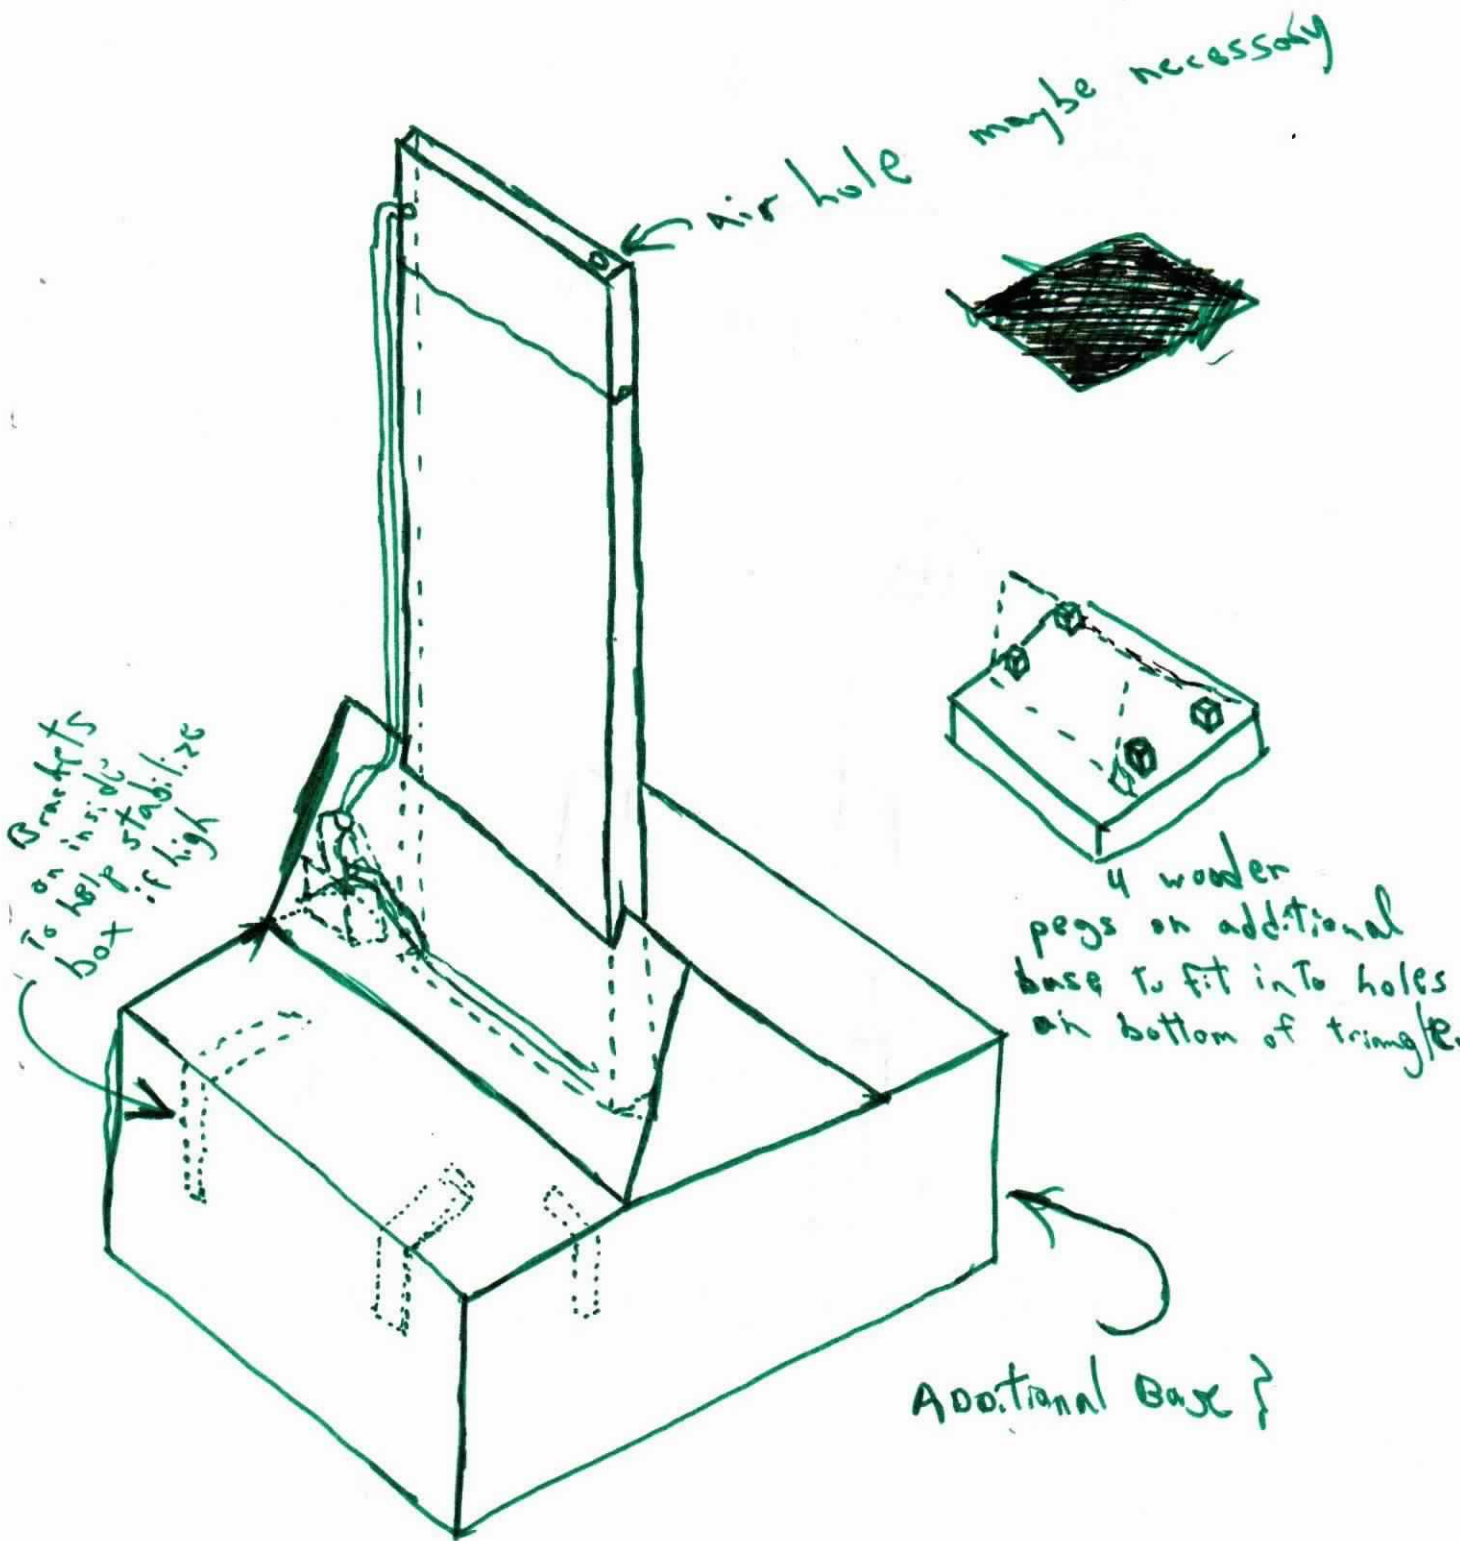 air hole maybe necessary
Brackets
on inside
To help stabilize
box if high
4 wooden
pegs on additional
base to fit into holes
on bottom of triangle.
ADDitional Base }